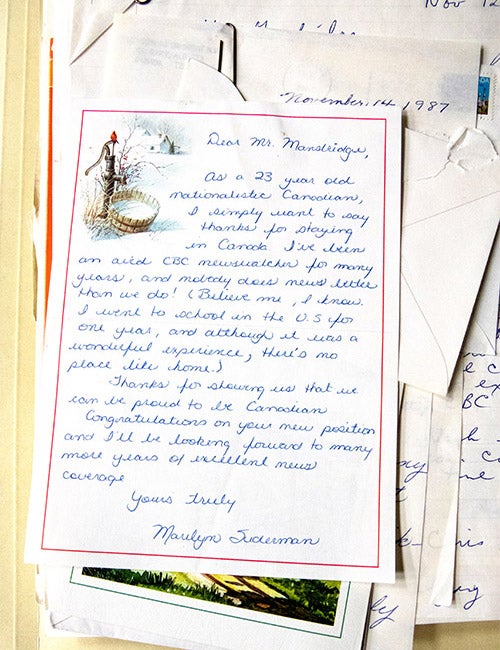 Nov 12
November, 14, 1987
Dear Mr. Mansbridge,
As a 23 year old
nationalistic Canadian,
I simply want to say
thanks for staying
in Canada. I've been
an avid CBC newswatcher for many
years, and nobody does news better
than we do! (Believe me, I know.
I went to school in the U.S for
one year, and although it was a
wonderful experience, there's no
place like home.)
Thanks for showing us that we
can be proud to be Canadian
Congratulations on your new position
and I'll be looking forward to many
more years of excellent news
coverage
Yours truly
Marilyn Suderman
BC